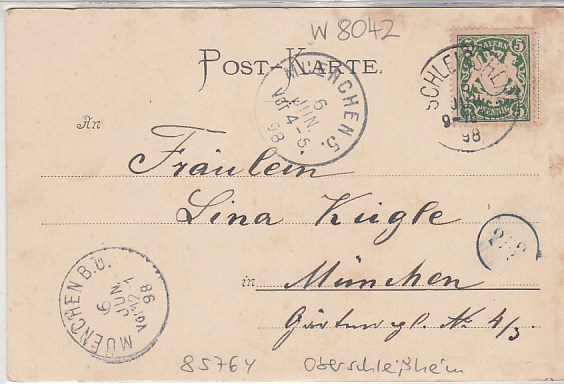 W 8042
POST-KARTE.
BAYERN
5 5
PFENNIG
SCHLEIS
JUN
9-10
98
MUENCHEN 5.
6
JUN.
Vor 4-5.
98
An
Fräulein
Lina Kugle
in München
Gärtnerpl. No 4/3
MUENCHEN B.Ü.
6
JUN
98
85764 Oberschleißheim